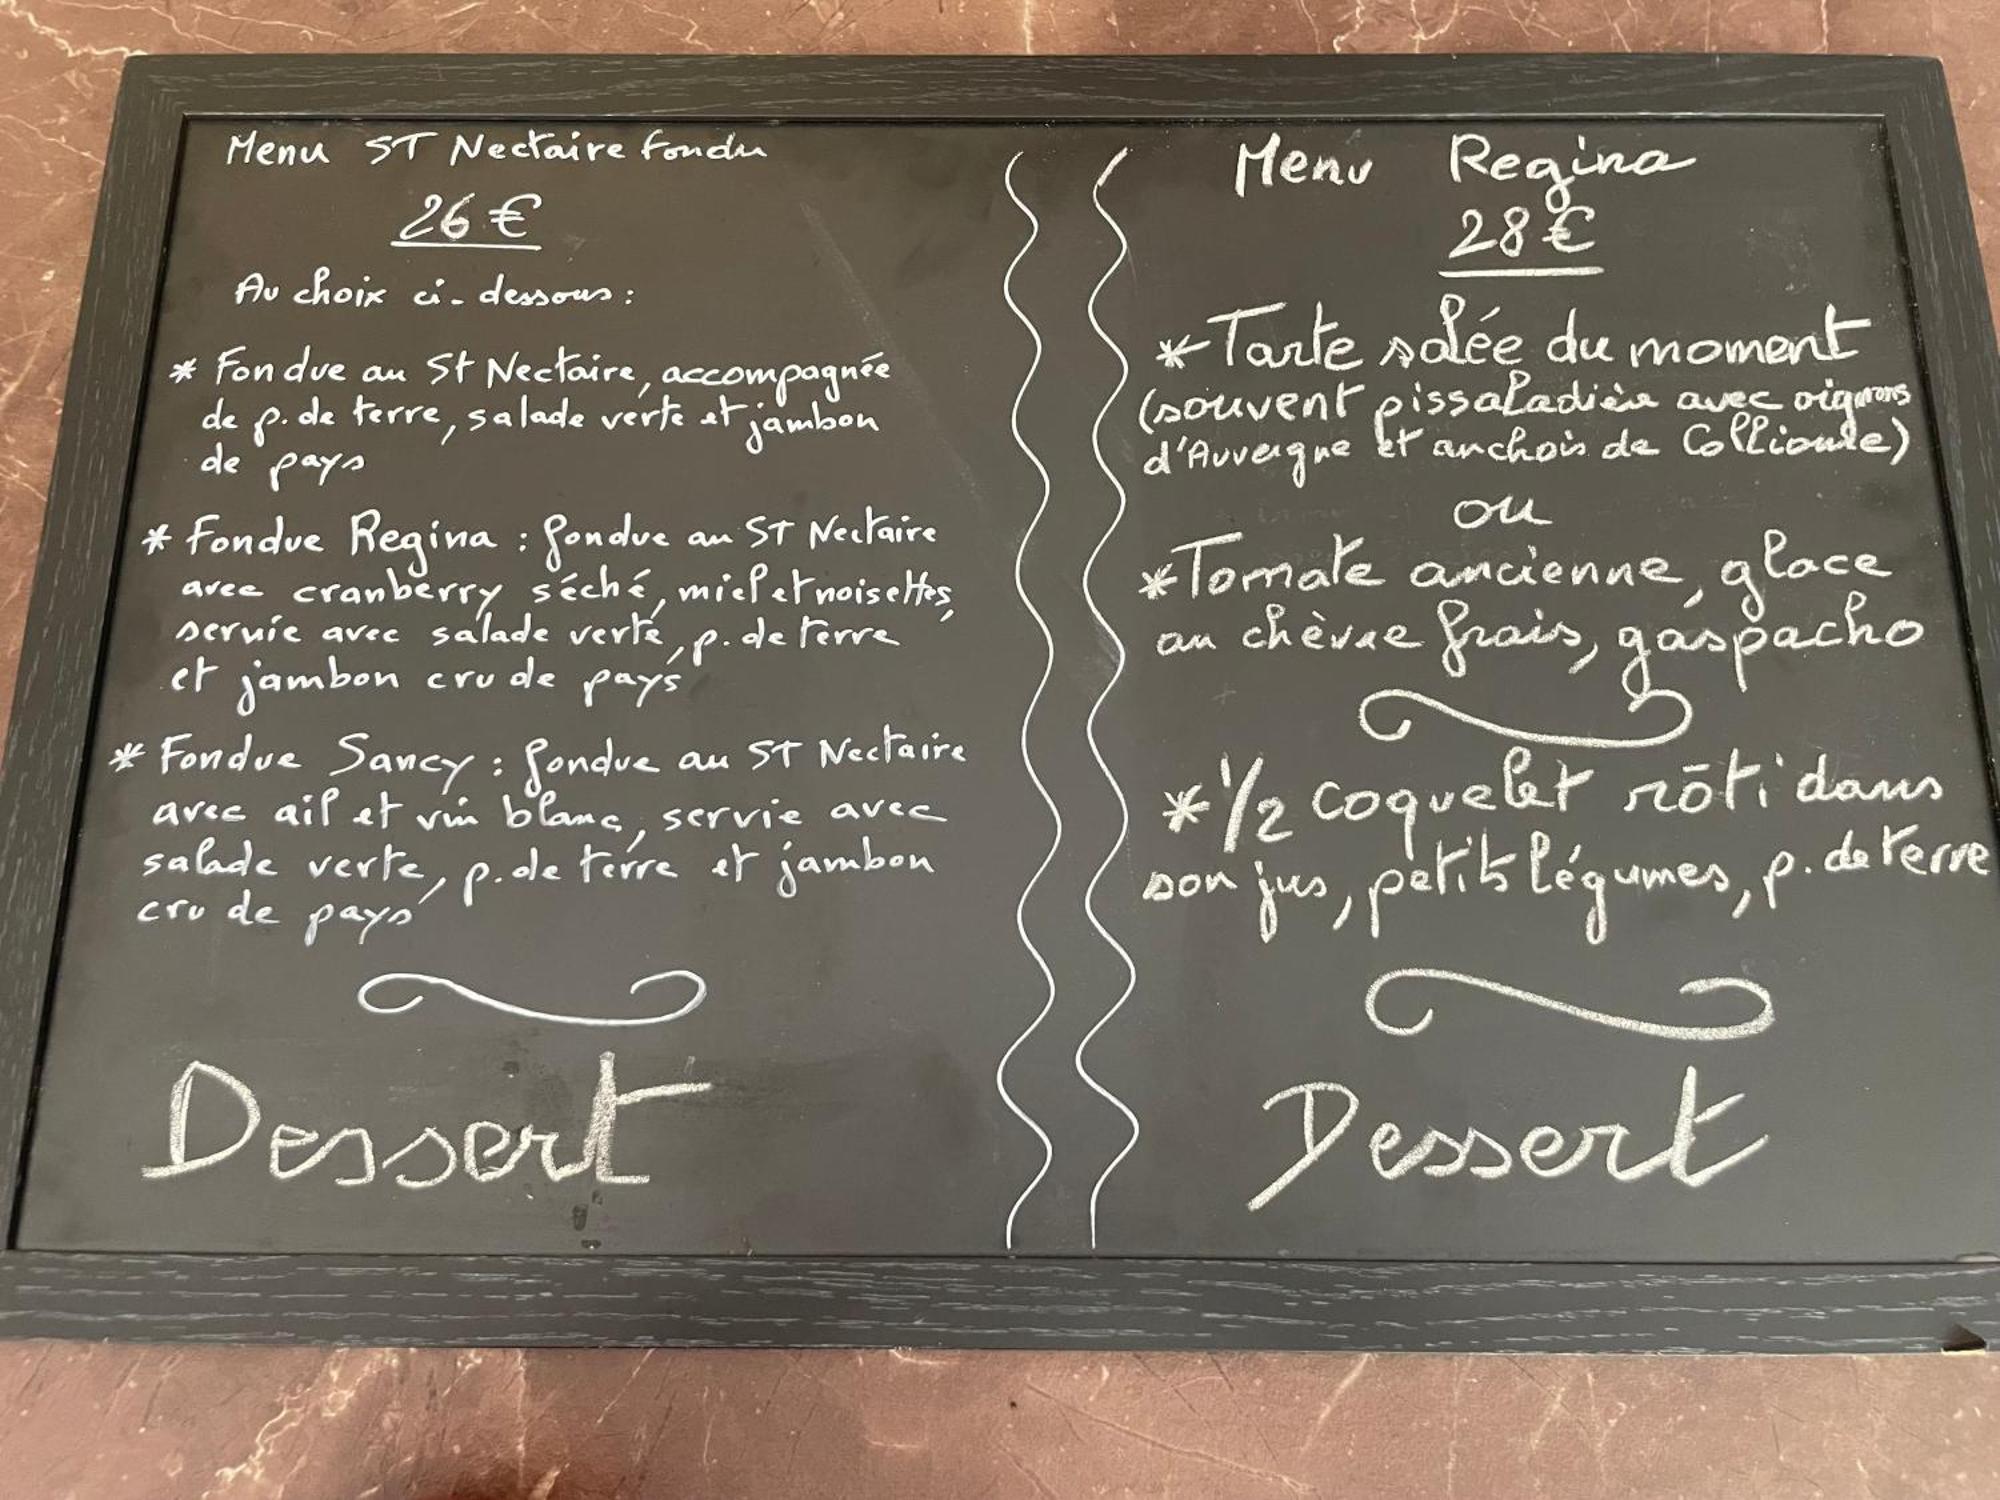 Menu ST Nectaire fondu
26 €
Au choix ci-dessous :
* Fondue au St Nectaire, accompagnée
de p. de terre, salade verte et jambon
de pays
* Fondue Regina : fondue au ST Nectaire
avec cranberry séché, miel et noisettes,
servie avec salade verte, p. de terre
et jambon cru de pays
* Fondue Sancy : fondue au ST Nectaire
avec ail et vin blanc, servie avec
salade verte, p. de terre et jambon
cru de pays
Dessert
Menu Regina
28 €
* Tarte salée du moment
(souvent pissaladière avec oignons
d'Auvergne et anchois de Collioure)
ou
* Tomate ancienne, glace
au chèvre frais, gaspacho
* 1/2 coquelet rôti dans
son jus, petits légumes, p. de terre
Dessert